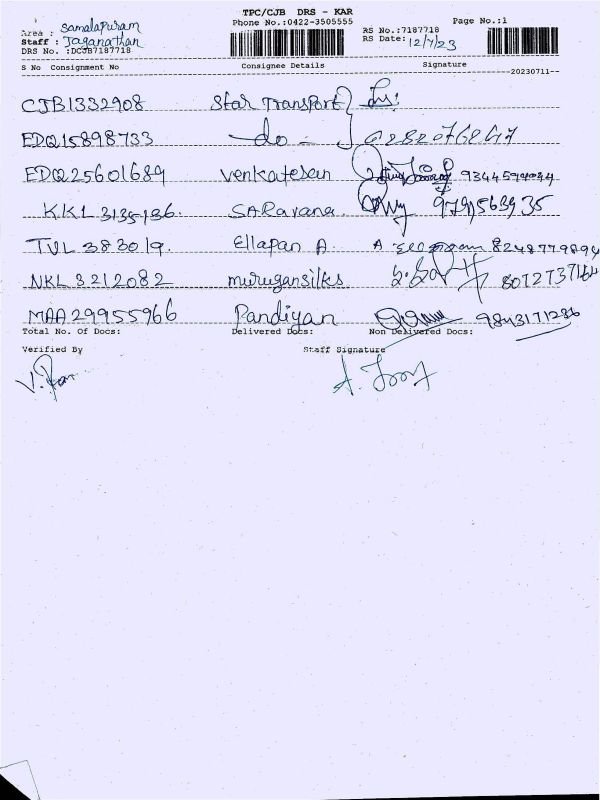 TPC/CJB DRS - KAR
Phone No.:0422-3505555 Page No.:1
Area : Samalapuram
Staff : Jaganathan
DRS No. :DCJB7187718
RS No.:7187718
RS Date: 12/7/23
S No Consignment No Consignee Details Signature
20230711
CJB1332908 Star Transport
EDQ15898733 do
EDQ25601689 Venkatesan
KKL 3135136. SARavana. 9791563935
TVL 383019. Ellapan A A 8248779894
NKL 3212082 murugansilks
MAA 29955966 Pandiyan 9843171286
Total No. Of Docs: Delivered Docs: Non Delivered Docs:
Verified By Staff Signature